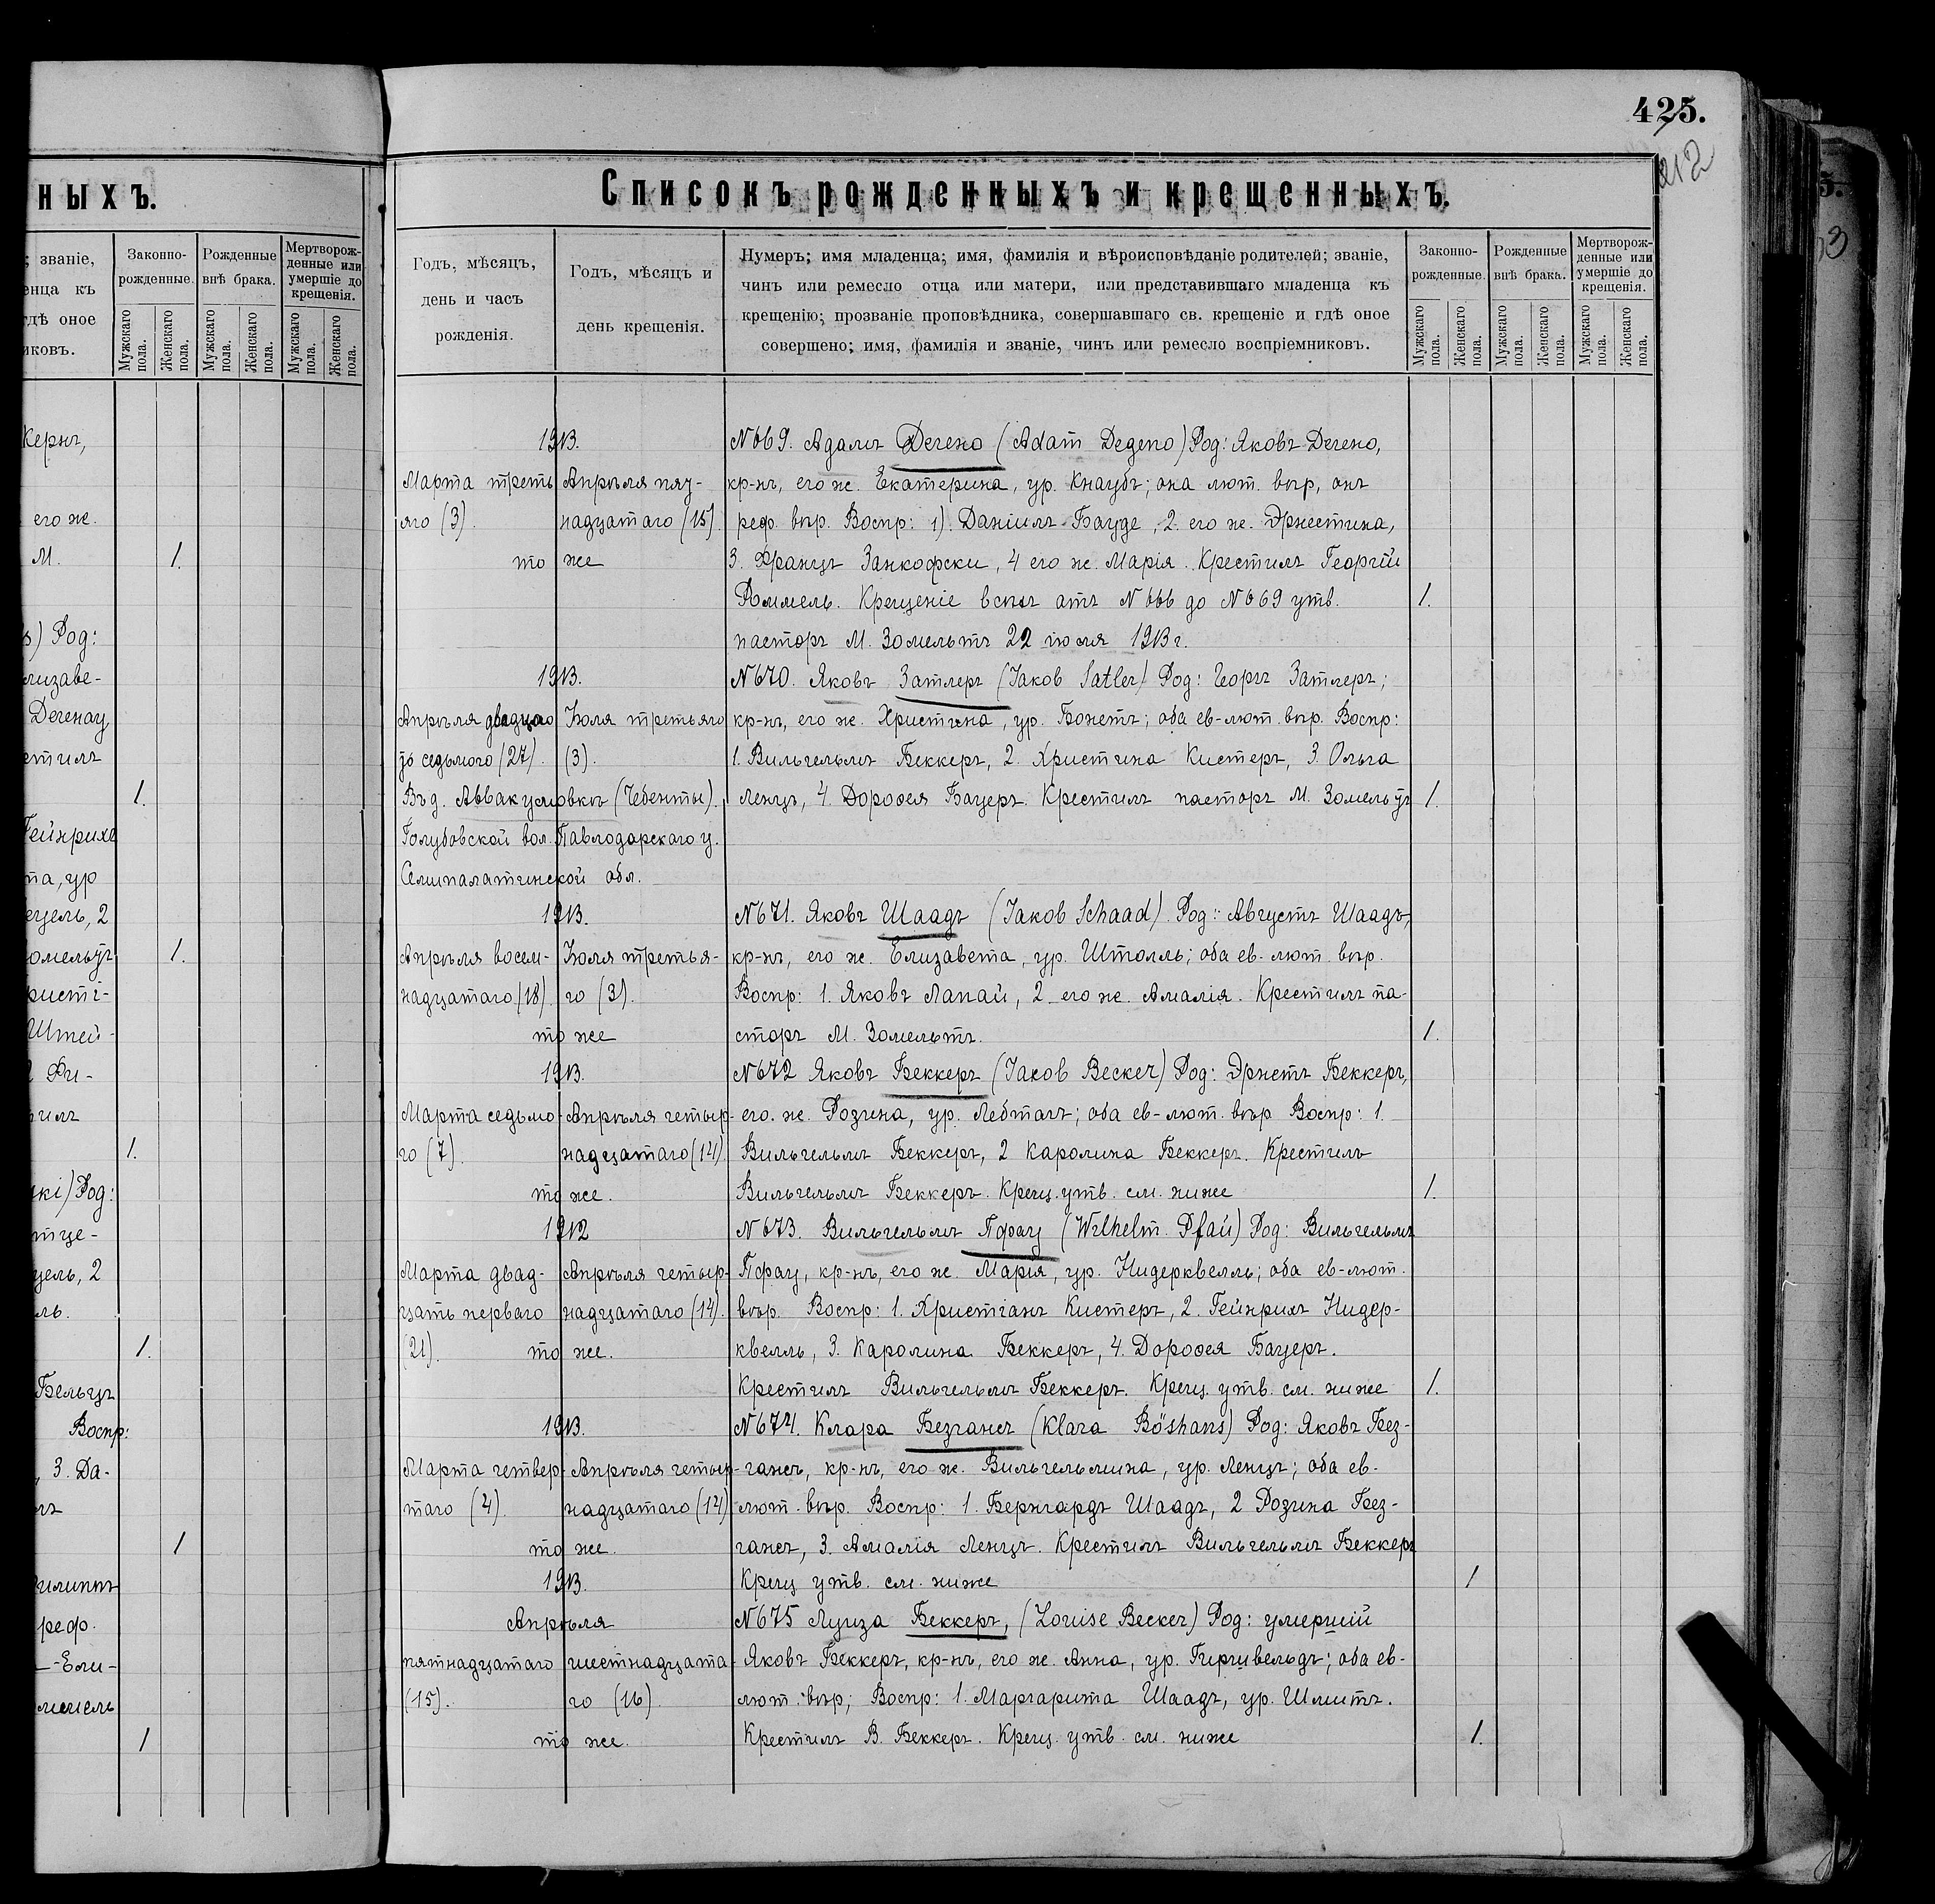 425.
212
ныхъ.
; званіе,
енца къ
гдѣ оное
иковъ.
Законно-
рожденные.
Рожденные
внѣ брака.
Мертворож-
денные или
умершіе до
крещенія.
Мужскаго пола.
Женскаго пола.
Мужскаго пола.
Женскаго пола.
Мужскаго пола.
Женскаго пола.
Кернъ,
его ж.
М.
1.
s) Род:
лизаве-
Дегенау
стилъ
1.
Гейнрихъ
та, ур
ецель, 2
омельтъ
1.
ристі-
Штей-
2 Фи-
1.
ki) Род:
тце-
цель, 2
ль.
1.
Бельцъ
Воспр:
, 3. Да-
1
илиппъ
реф.
-Ели-
1
Списокъ рожденныхъ и крещенныхъ.
Годъ, мѣсяцъ,
день и часъ
рожденія.
Годъ, мѣсяцъ и
день крещенія.
Нумеръ; имя младенца; имя, фамилія и вѣроисповѣданіе родителей; званіе,
чинъ или ремесло отца или матери, или представившаго младенца къ
крещенію; прозваніе проповѣдника, совершавшаго св. крещеніе и гдѣ оное
совершено; имя, фамилія и званіе, чинъ или ремесло воспріемниковъ.
Законно-
рожденные.
Рожденные
внѣ брака.
Мертворож-
денные или
умершіе до
крещенія.
Мужскаго пола.
Женскаго пола.
Мужскаго пола.
Женскаго пола.
Мужскаго пола.
Женскаго пола.
1913. N669. Адамъ Дегено (Adam Degeno) Род: Яковъ Дегено,
Марта треть Апрѣля пят- кр-нъ, его ж. Екатерина, ур. Кнаубъ; она лют. вѣр, онъ
яго (3). надцатаго (15). реф. вѣр. Воспр: 1). Даніилъ Бауде, 2. его ж. Эрнестина,
то же 3. Францъ Занкофски, 4 его ж. Марія. Крестилъ Георгій
Роммель. Крещеніе всѣхъ отъ N666 до N669 утв. 1.
пасторъ М. Зомельтъ 22 іюля 1913 г.
1913. N670. Яковъ Затлеръ (Jakob Satler) Род: Георгъ Затлеръ;
Апрѣля двадца Іюля третьяго кр-нъ, его ж. Христина, ур. Бонетъ; оба ев-лют. вѣр. Воспр:
ть седьмого (27). (3). 1. Вильгельмъ Беккеръ, 2. Христина Кистеръ, 3. Ольга
Въ д. Аввакумовкѣ (Чебенты). Ленцъ, 4. Дорофея Бауеръ. Крестилъ пасторъ М. Зомельтъ 1.
Голубовской вол. Павлодарскаго у.
Семипалатинской обл.
1913. N671. Яковъ Шаадъ (Jakob Schaad). Род: Августъ Шаадъ,
Апрѣля восем- Іюля третья- кр-нъ, его ж. Елизавета, ур. Штолль; оба ев-лют. вѣр.
надцатаго (18). го (3). Воспр: 1. Яковъ Лапай, 2. его ж. Амалія. Крестилъ па-
то же сторъ М. Зомельтъ. 1.
1913. N672 Яковъ Беккеръ (Jakob Becker) Род: Эрнстъ Беккеръ,
Марта седьмо- Апрѣля четыр- его. ж. Розина, ур. Лебтагъ; оба ев-лют. вѣр Воспр: 1.
го (7). надцатаго (14). Вильгельмъ Беккеръ, 2 Каролина Беккеръ. Крестилъ
то же. Вильгельмъ Беккеръ. Крещ. утв. см. ниже 1.
1912 N673. Вильгельмъ Пфау (Wilhelm Pfau) Род: Вильгельмъ
Марта двад- Апрѣля четыр- Пфау, кр-нъ, его ж. Марія, ур. Нидерквелль; оба ев-лют.
цать перваго надцатаго (14). вѣр. Воспр: 1. Христіанъ Кистеръ, 2. Гейнрихъ Нидер-
(21). то же. квелль, 3. Каролина Беккеръ, 4. Дорофея Бауеръ.
Крестилъ Вильгельмъ Беккеръ. Крещ. утв. см. ниже 1.
1913. N674. Клара Безгансъ (Klara Böshans) Род: Яковъ Без-
Марта четвер- Апрѣля четыр- гансъ, кр-нъ, его ж. Вильгельмина, ур. Ленцъ; оба ев-
таго (4). надцатаго (14) лют. вѣр. Воспр: 1. Бернгардъ Шаадъ, 2 Розина Без-
то же. гансъ, 3. Амалія Ленцъ. Крестилъ Вильгельмъ Беккеръ
1913. Крещ утв. см. ниже 1
Апрѣля N675 Луиза Беккеръ, (Louise Becker) Род: умершій
пятнадцатаго шестнадцата- Яковъ Беккеръ, кр-нъ, его ж. Анна, ур. Гиршвельдъ; оба ев-
(15). го (16). лют. вѣр; Воспр: 1. Маргарита Шаадъ, ур. Шмитъ.
то же. Крестилъ В. Беккеръ. Крещ. утв. см. ниже 1.